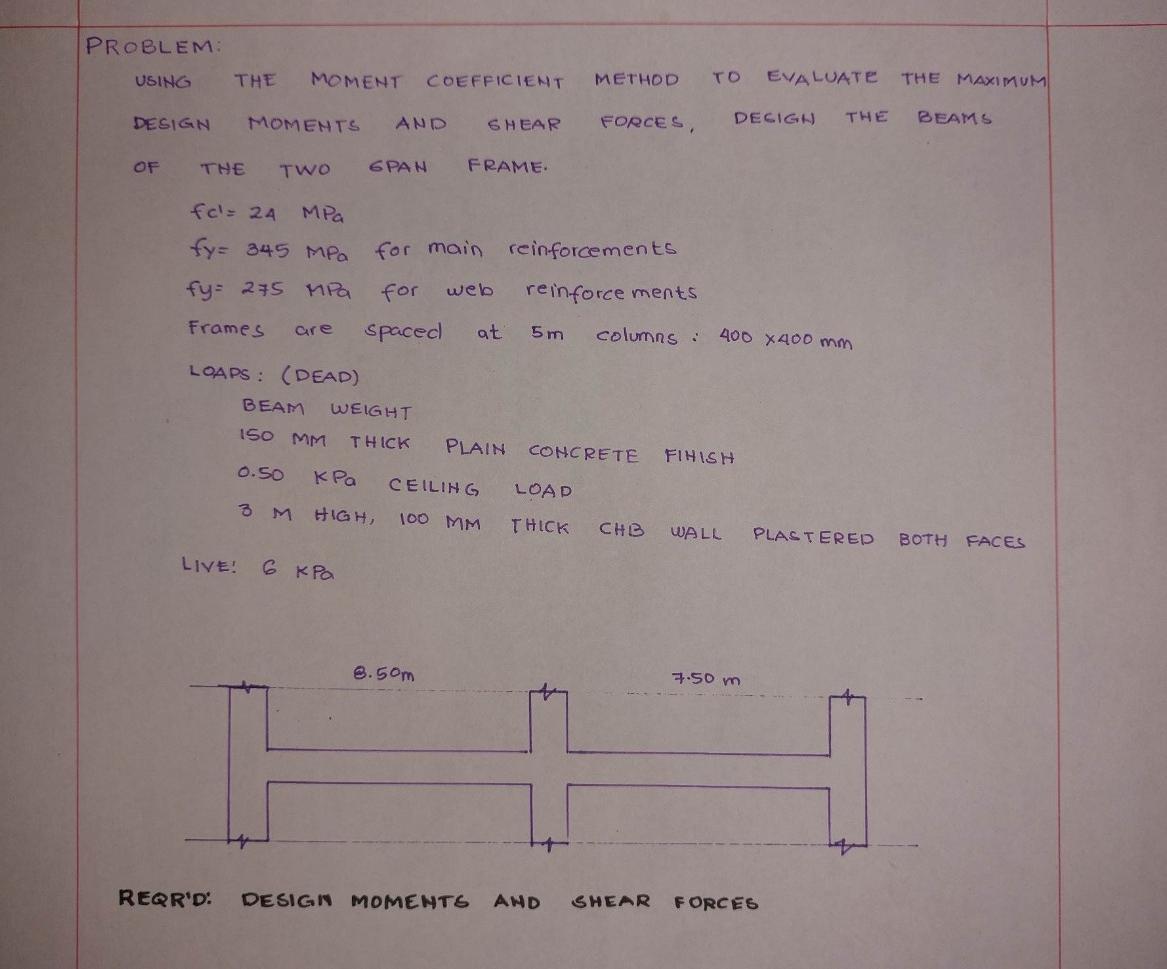 PROBLEM:
USING THE MOMENT COEFFICIENT METHOD TO EVALUATE THE MAXIMUM
DESIGN MOMENTS AND SHEAR FORCES, DESIGN THE BEAMS
OF THE TWO SPAN FRAME.
fc'= 24 MPa
fy= 345 MPa for main reinforcements
fy= 275 MPa for web reinforcements
Frames are spaced at 5m columns : 400 x400 mm
LOADS: (DEAD)
BEAM WEIGHT
150 MM THICK PLAIN CONCRETE FINISH
0.50 KPa CEILING LOAD
3 M HIGH, 100 MM THICK CHB WALL PLASTERED BOTH FACES
LIVE: 6 KPa
8.50m 7.50 m
REQR'D: DESIGN MOMENTS AND SHEAR FORCES